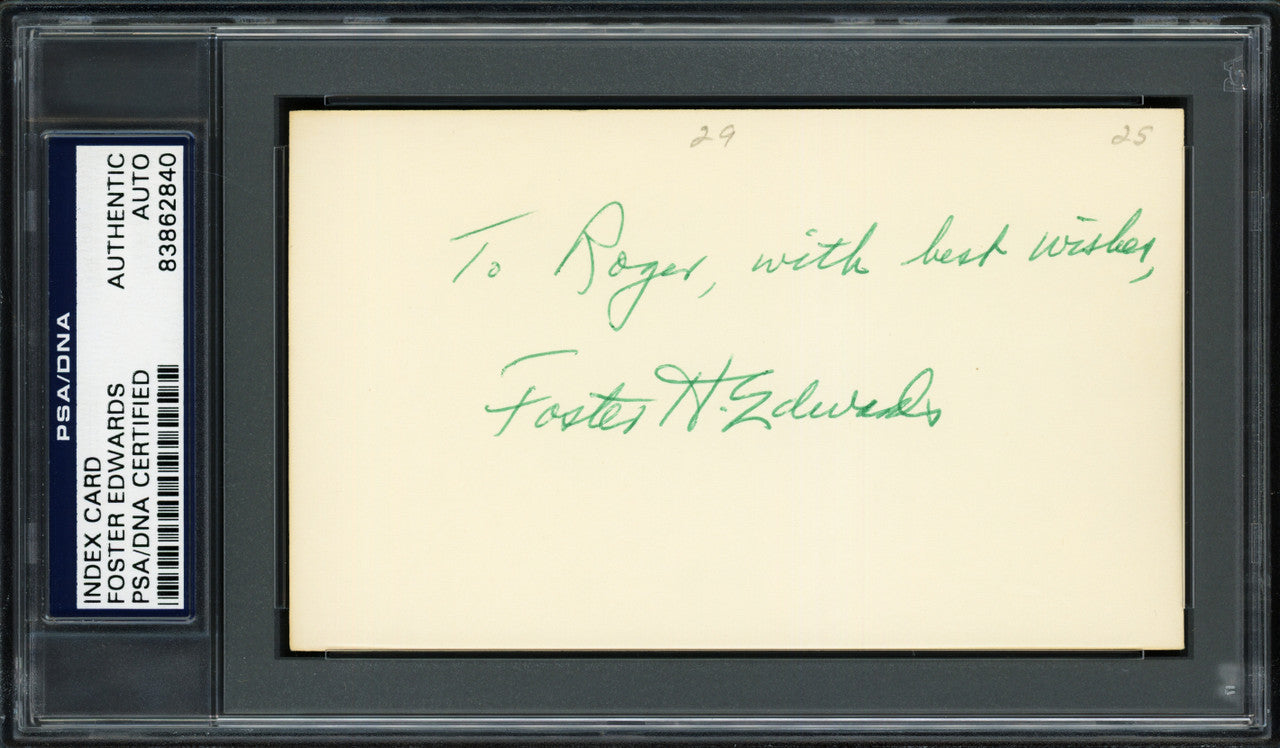 PSA/DNA
INDEX CARD
FOSTER EDWARDS
PSA/DNA CERTIFIED
AUTHENTIC
AUTO
83862840
29
25
To Roger, with best wishes,
Foster H. Edwards